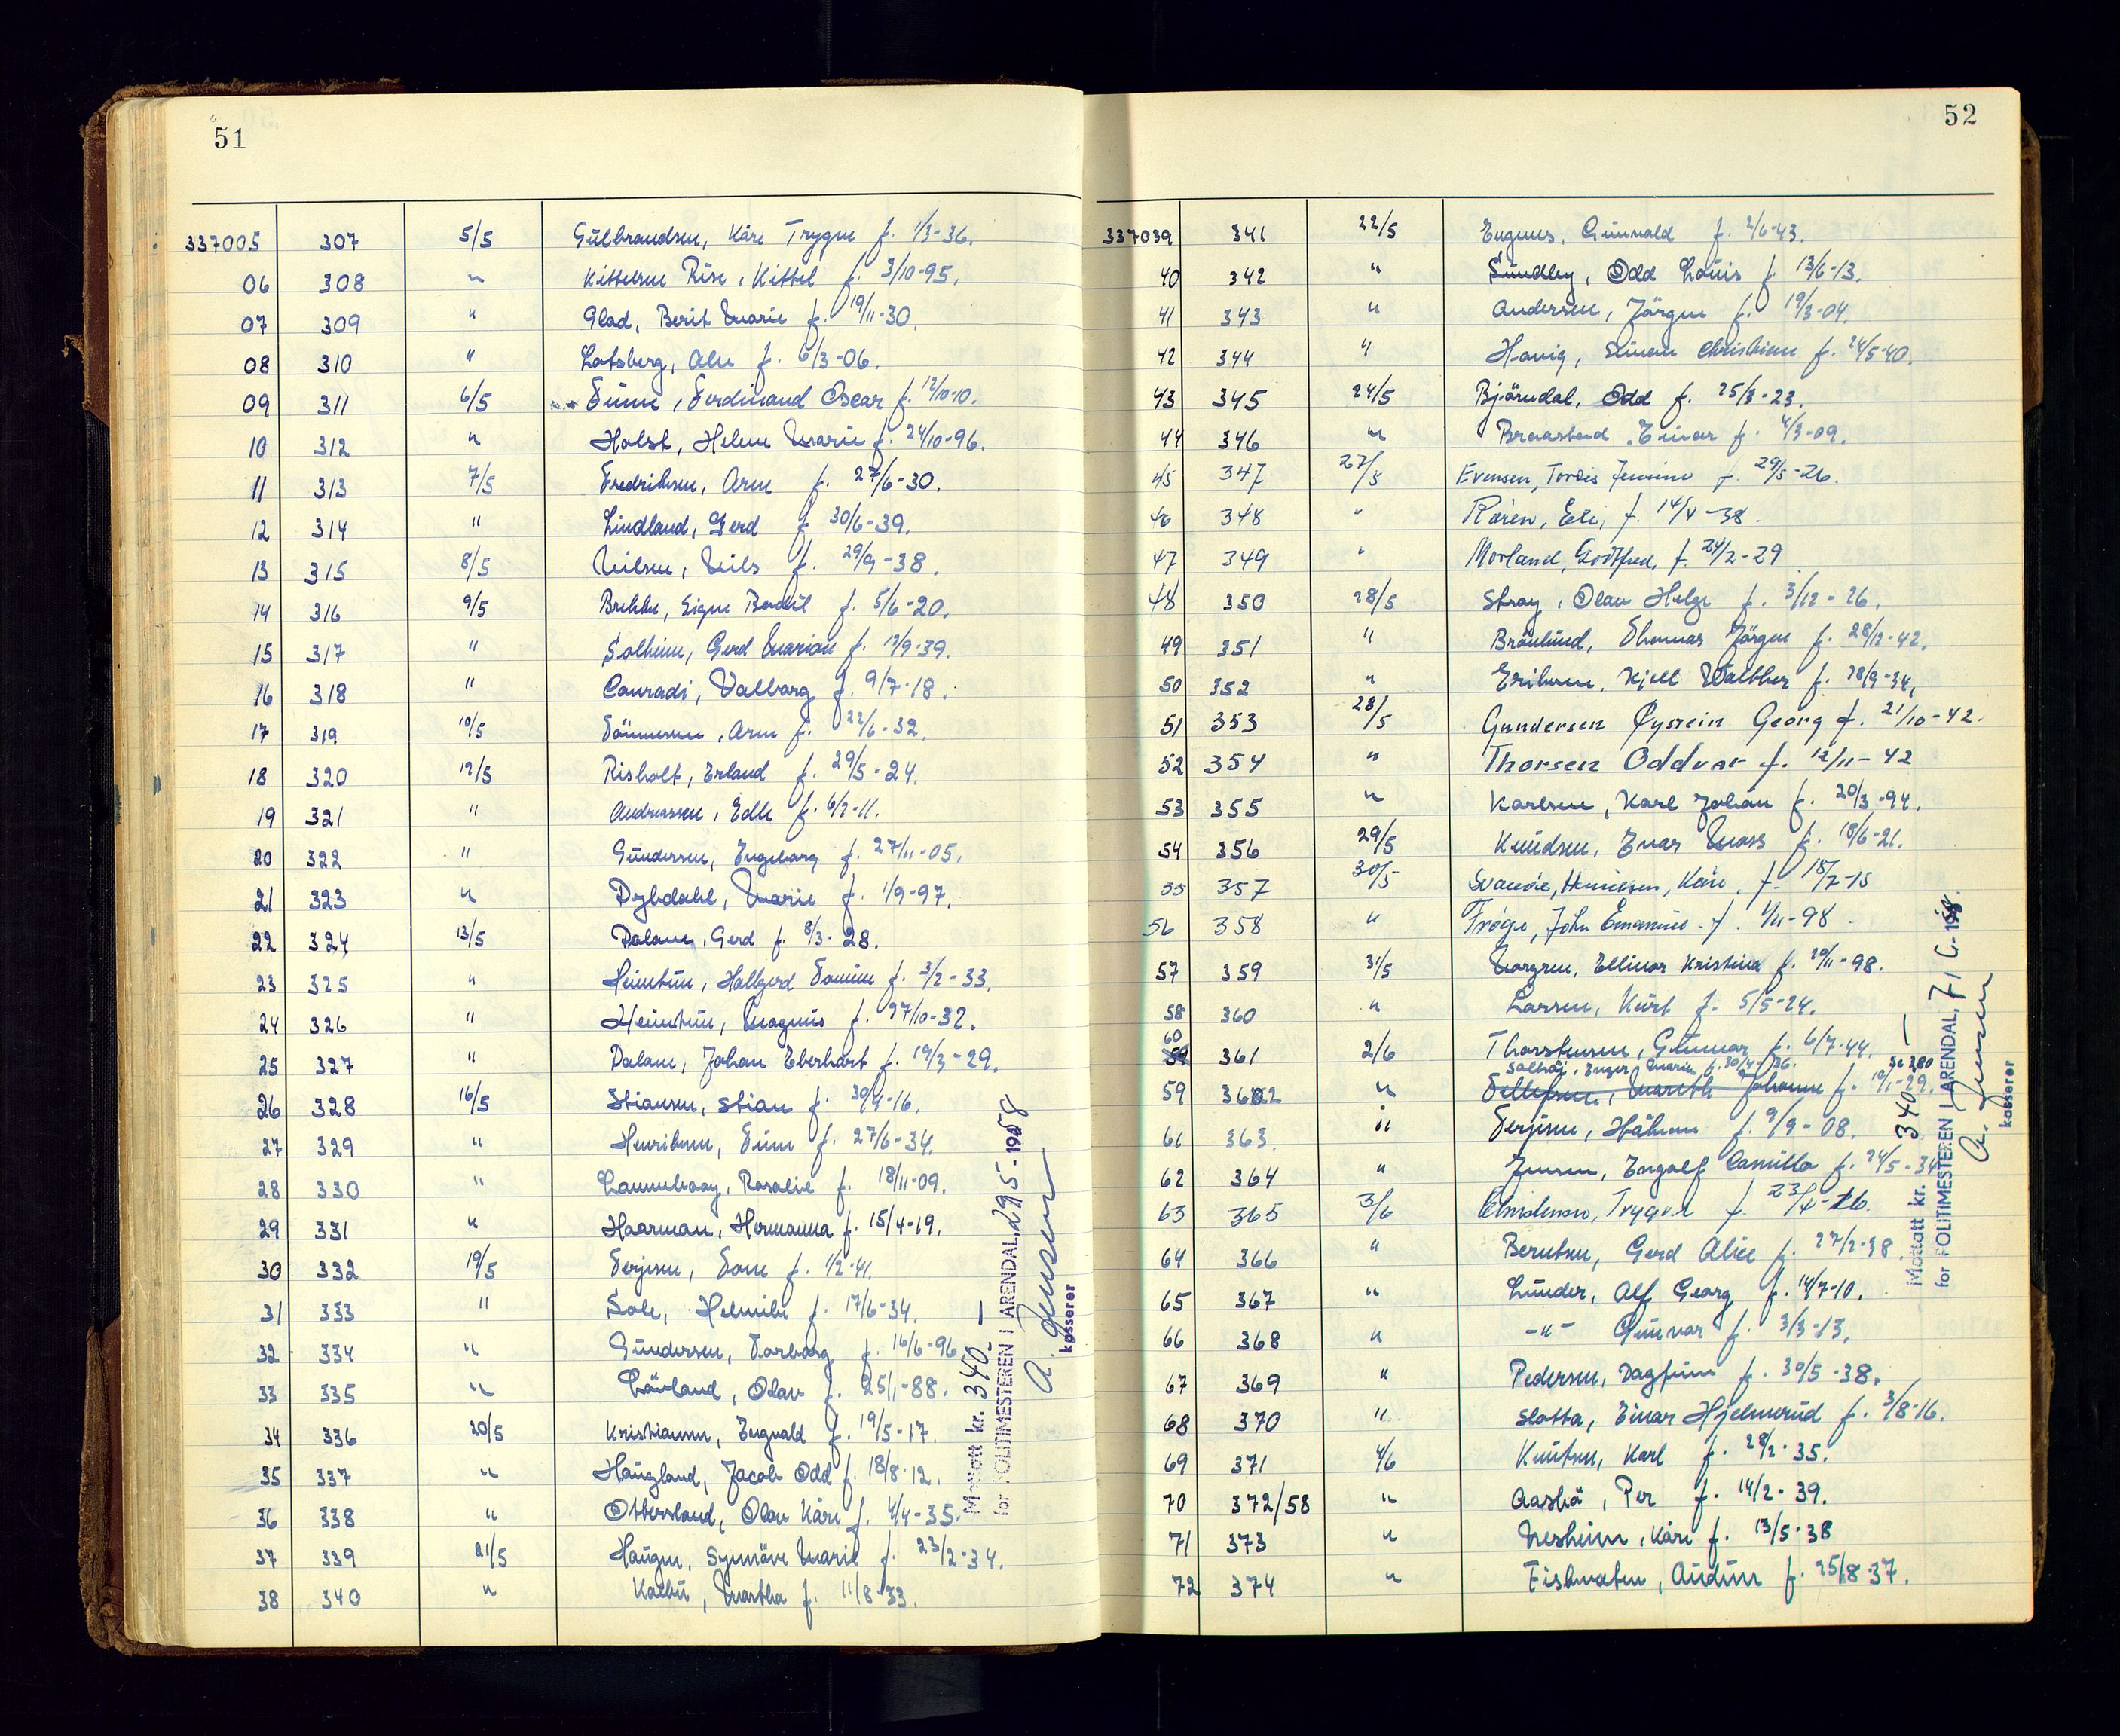 51
337005 307 5/5 Gulbrandsen, Kåre Trygve f. 1/3-36.
06 308 " Kittelsen Rise, Kittel f. 3/10-95.
07 309 " Glad, Berit Marie f. 19/11-30.
08 310 " Lotsberg, Alv f. 6/3-06.
09 311 6/5 Ferdinand Oscar f. 12/10-10.
10 312 " Holst, Helene Marie f. 24/10-96.
11 313 7/5 Fredriksen, Arne f. 27/6-30.
12 314 " Lindland, Gerd f. 30/6-39.
13 315 8/5 Nilsen, Nils f. 29/9-38.
14 316 9/5 Brekke, Signe Bodil f. 5/6-20.
15 317 " Solheim, Gerd Marion f. 12/9-39.
16 318 " Conradi, Valborg f. 9/7-18.
17 319 10/5 Tönnessen, Arne f. 22/6-32.
18 320 12/5 Risholt, Erland f. 29/5-24.
19 321 " Andreassen, Edle f. 6/2-11.
20 322 " Gundersen, Ingeborg f. 27/11-05.
21 323 " Dybdahl, Marie f. 1/9-97.
22 324 13/5 Dalane, Gerd f. 8/3-28.
23 325 " Heimtun, Hallgerd f. 3/2-33.
24 326 " Heimtun, Magnus f. 27/10-32.
25 327 " Dalane, Johan Eberhart f. 19/3-29.
26 328 16/5 Stiansen, Stian f. 30/4-16.
27 329 " Henriksen, f. 27/6-34.
28 330 " Rosalie f. 18/11-09.
29 331 " Haarman, Hermanna f. 15/4-19.
30 332 19/5 Terjesen, Tom f. 1/2-41.
31 333 " Sole, Helmike f. 17/6-34.
32 334 " Gundersen, Torborg f. 16/6-96
33 335 " Lövland, Olav f. 25/1-88.
34 336 20/5 Kristiansen, Ingvald f. 19/5-17.
35 337 " Haugland, Jacob Odd f. 18/8-12.
36 338 " Ottersland, Olav Kåre f. 4/4-35.
37 339 21/5 Haugen, Synnöve Marie f. 23/2-34.
38 340 " Martha f. 11/8-33.
Mottatt kr. 340.—
for POLITIMESTEREN I ARENDAL, 29/5-1958
A. Jensen
kasserer
52
337039 341 22/5 Gunvald f. 2/6-43.
40 342 " Sundby, Odd Louis f. 13/6-13.
41 343 " Andersen, Jörgen f. 19/3-04.
42 344 " Christian f. 24/5-40.
43 345 24/5 Bjöndal, Odd f. 25/3-23.
44 346 " Einar f. 4/3-09.
45 347 27/5 Evensen, Tordis f. 29/5-26.
46 348 " f. 14/4-38.
47 349 " Morland, Godtfred, f. 24/2-29
48 350 28/5 Stray, Olav Helge f. 3/12-26.
49 351 " Brönlund, Thomas Jörgen f. 28/12-42.
50 352 " Eriksen, Kjell Walther f. 28/9-34,
51 353 28/5 Gundersen Øystein Georg f. 21/10-42.
52 354 " Thorsen Oddvar f. 12/11-42
53 355 " Karlsen, Karl Johan f. 20/3-94.
54 356 29/5 Knudsen, Ivar Moss f. 18/6-21.
55 357 30/5 Kåre, f. 18/7-15
56 358 " John f. 1/11-98.
57 359 31/5 Norgren, Ellinor Kristine f. 20/11-98.
58 360 " Larsen, Kurt f. 5/5-24.
60
59 361 2/6 Thorstensen, Gunnar f. 6/7-44.
Inger Marie f. 30/4-36.
59 362 " Tellefsen, Mareth Johanne f. 10/1-29.
61 363. " Terjesen, Håkon f. 9/9-08.
62 364 " Jensen, Ingolf Camillo f. 24/5-34
63 365 3/6 Christensen, Trygve f. 23/4-26.
64 366 " Berntsen, Gerd Alice f. 27/2-38
65 367 " Lunder, Alf Georg f. 14/7-10.
66 368 " -"- Gunvor f. 3/3-13.
67 369 " Pedersen, Dagfinn f. 30/5-38.
68 370 " Slotta, Einar Hjelmerud f. 3/8-16.
69 371 4/6 Knutsen, Karl f. 28/2-35.
70 372/58 " Aasbö, Per f. 14/2-39.
71 373 " Nesheim, Kåre f. 13/5-38
72 374 " Fiskvatn, Audun f. 25/8-37.
Mottatt kr. 340.—
for POLITIMESTEREN I ARENDAL, 7/6-1958.
A. Jensen
kasserer